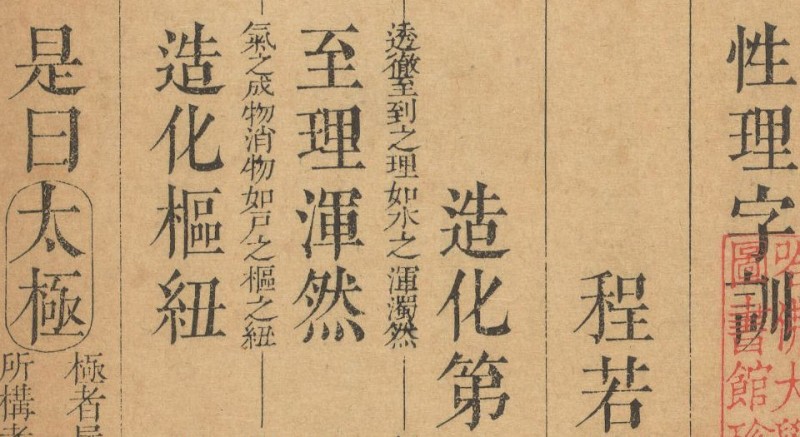 性理字訓
程若
造化第
透徹至到之理如水之渾濁然
至理渾然
氣之成物消物如戶之樞之紐
造化樞紐
是曰太極
極者
所構